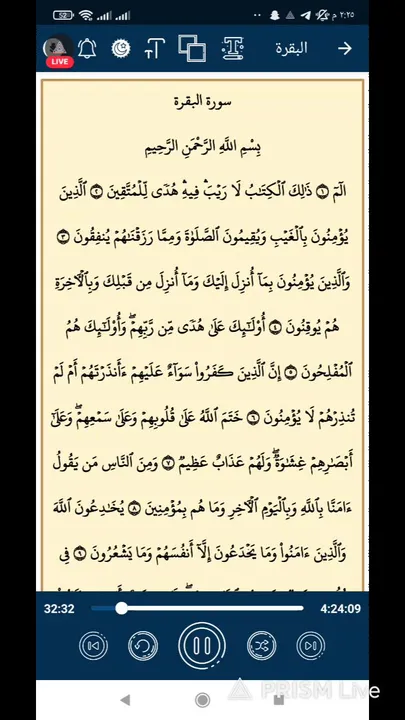 52
٢:٢٥ م
البقرة
LIVE
سورة البقرة
بِسْمِ اللَّهِ الرَّحْمَٰنِ الرَّحِيمِ
الٓمٓ ۝١ ذَٰلِكَ الْكِتَٰبُ لَا رَيْبَ ۛ فِيهِ ۛ هُدًى لِّلْمُتَّقِينَ ۝٢ الَّذِينَ
يُؤْمِنُونَ بِالْغَيْبِ وَيُقِيمُونَ الصَّلَوٰةَ وَمِمَّا رَزَقْنَٰهُمْ يُنفِقُونَ ۝٣
وَالَّذِينَ يُؤْمِنُونَ بِمَآ أُنزِلَ إِلَيْكَ وَمَآ أُنزِلَ مِن قَبْلِكَ وَبِالْءَاخِرَةِ
هُمْ يُوقِنُونَ ۝٤ أُو۟لَٰٓئِكَ عَلَىٰ هُدًى مِّن رَّبِّهِمْ ۖ وَأُو۟لَٰٓئِكَ هُمُ
الْمُفْلِحُونَ ۝٥ إِنَّ الَّذِينَ كَفَرُوا۟ سَوَآءٌ عَلَيْهِمْ ءَأَنذَرْتَهُمْ أَمْ لَمْ
تُنذِرْهُمْ لَا يُؤْمِنُونَ ۝٦ خَتَمَ اللَّهُ عَلَىٰ قُلُوبِهِمْ وَعَلَىٰ سَمْعِهِمْ ۖ وَعَلَىٰٓ
أَبْصَٰرِهِمْ غِشَٰوَةٌ ۖ وَلَهُمْ عَذَابٌ عَظِيمٌ ۝٧ وَمِنَ النَّاسِ مَن يَقُولُ
ءَامَنَّا بِاللَّهِ وَبِالْيَوْمِ الْءَاخِرِ وَمَا هُم بِمُؤْمِنِينَ ۝٨ يُخَٰدِعُونَ اللَّهَ
وَالَّذِينَ ءَامَنُوا۟ وَمَا يَخْدَعُونَ إِلَّآ أَنفُسَهُمْ وَمَا يَشْعُرُونَ ۝٩ فِى
32:32
4:24:09
PRISM Live